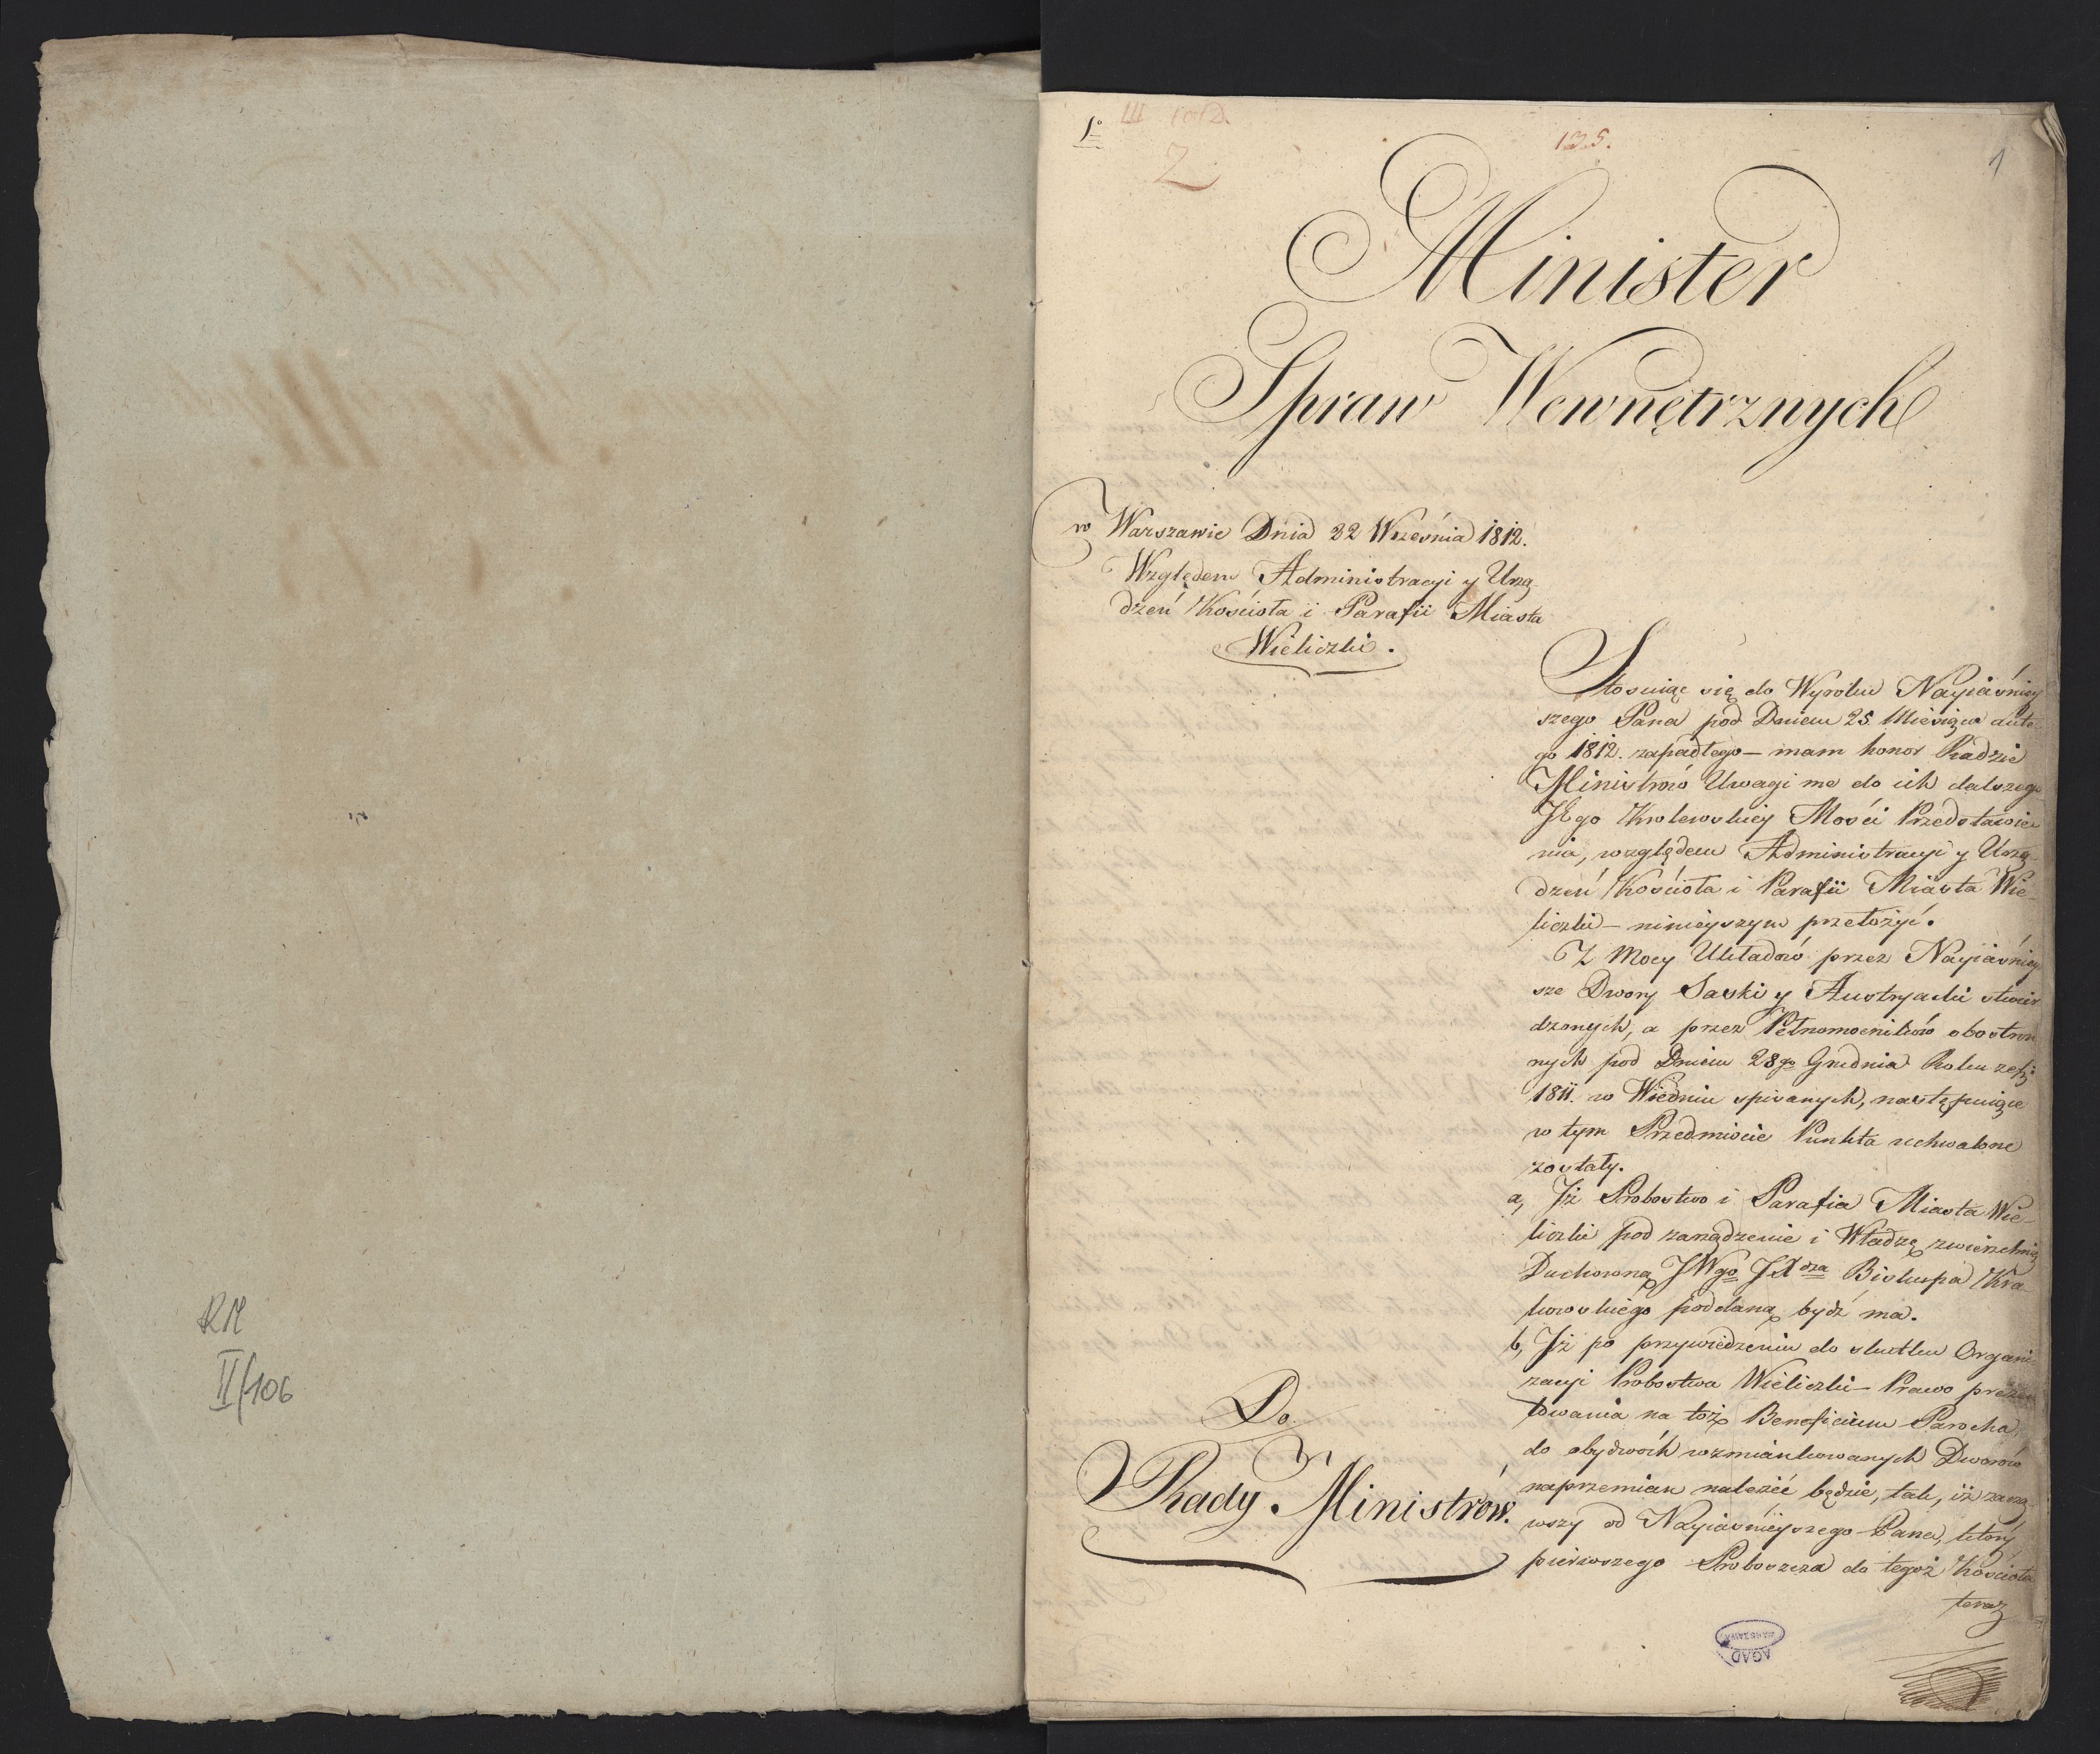 RM
II/106
1º
III 1012.
2
135.
1
Minister
Spraw Wewnętrznych
w Warszawie Dnia 22 Września 1812.
Względem Administracyi y Urzą-
dzeń Kościoła i Parafii Miasta
Wieliczki.
Stosuiąc się do Wyroku Nayiaśniey
szego Pana pod Dniem 25 Miesiąca Lute-
go 1812. zapadłego – mam honor Radzie
Ministrów Uwagi me do ich dalszego
JEgo Krolewskiey Mości Przedstawie
nia, względem Administracyi y Urzą-
dzeń Kościoła i Parafii Miasta Wie-
liczki – ninieyszym przełożyć.
Z Mocy Układów przez Nayiaśniey
sze Dwory Saski y Austryacki stwier
dzonych, a przez Pełnomocników obostron
nych pod Dniem 28go Grudnia Roku zesz:
1811. w Wiedniu spisanych, następuiące
w tym Przedmiocie Punkta uchwalone
zostały.
a, Jż Probostwo i Parafia Miasta Wie-
liczki pod zarządzenie i Władzę zwierzchnią
Duchowną JWgo JXdza Biskupa Kra-
kowskiego poddaną bydź ma.
b, Jż po przywiedzeniu do skutku Organi-
zacyi Probostwa Wieliczki – Prawo prezen
towania na toż Beneficium Parocha
do obydwóch wzmiankowanych Dworów
naprzemian należéć będzie, tak, iż zacząw-
wszy od Nayiaśnieyszego Pana, który
pierwszego Proboszcza do tegoż Kościoła
teraz
Do
Rady Ministrów.
AGAD
WARSZAWA